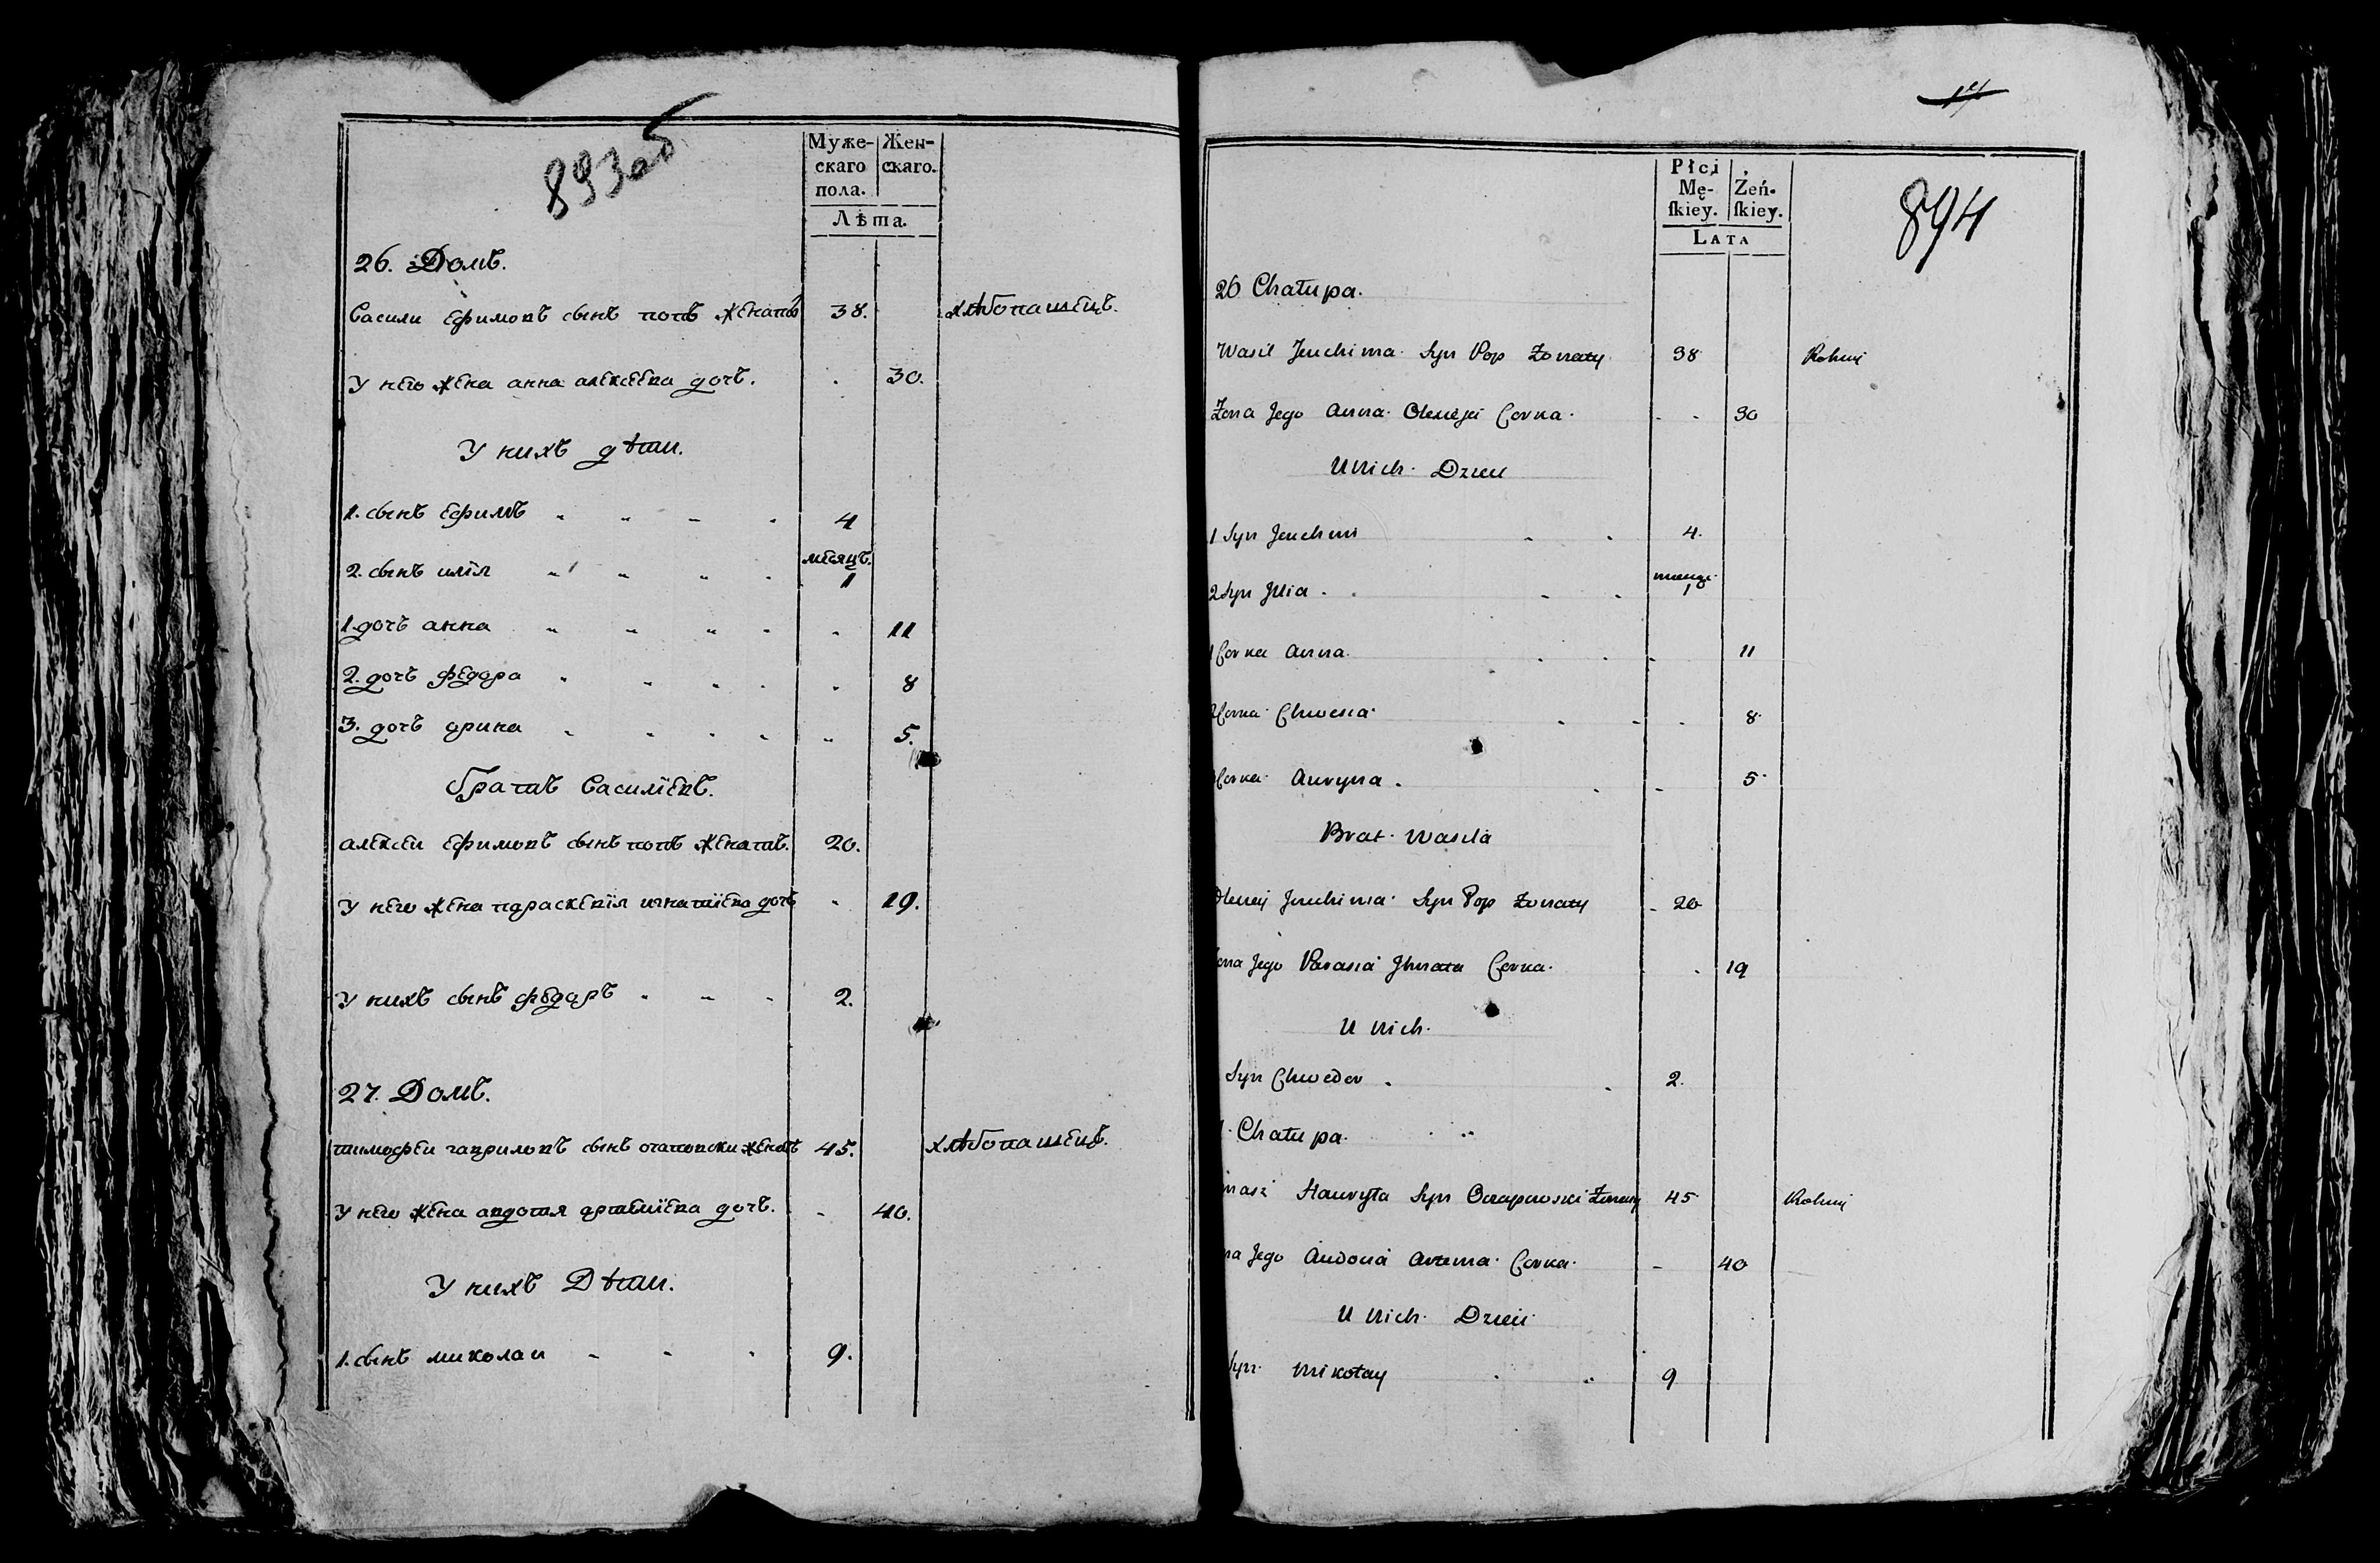 893об
Муже-
скаго
пола.
Жен-
скаго.
Лѣта.
26. Домъ.
Василй Ефимовъ сынъ попъ женатъ 38. хлѣбопашецъ.
У него жена анна алексеева дочъ. 30.
У нихъ дѣти.
1. сынъ Ефимъ 4
2. сынъ илїя месяцъ. 1
1. дочъ анна 11
2. дочъ федора 8
3. дочъ арина 5.
братъ Василїевъ.
алексей Ефимовъ сынъ попъ женатъ. 20.
У него жена параскевїя игнатїева дочъ 19.
У нихъ сынъ федаръ 2.
27. Домъ.
тимофей гавриловъ сынъ женатъ 45. хлѣбопашецъ.
У него жена авдотя артемїева дочъ. 40.
У нихъ Дѣти.
1. сынъ миколай 9.
14
894
Płci
Mę-
ſkiey.
Żeń-
ſkiey.
LATA
26 Chałupa.
Wasil Jeuchima Syn Pop Żonaty 38 Rolniy
Żona Jego Anna Olexieja Corka 30
U Nich Dzieci
1 Syn Jeuchim 4.
2 Syn Jllia 1
1 Corka Anna 11
Corka Chwesia 8
Corka Auryna 5
Brat Wasila
Olexiey Jeuchima Syn Pop Żonaty 20
Żona Jego Parasia Jhnata Corka 19
U Nich
Syn Chwedor 2.
Chałupa.
Hauryła Syn Żonaty 45 Rolniy
Jego Audocia Artema Corka 40
U Nich Dzieci
Syn Mikołay 9